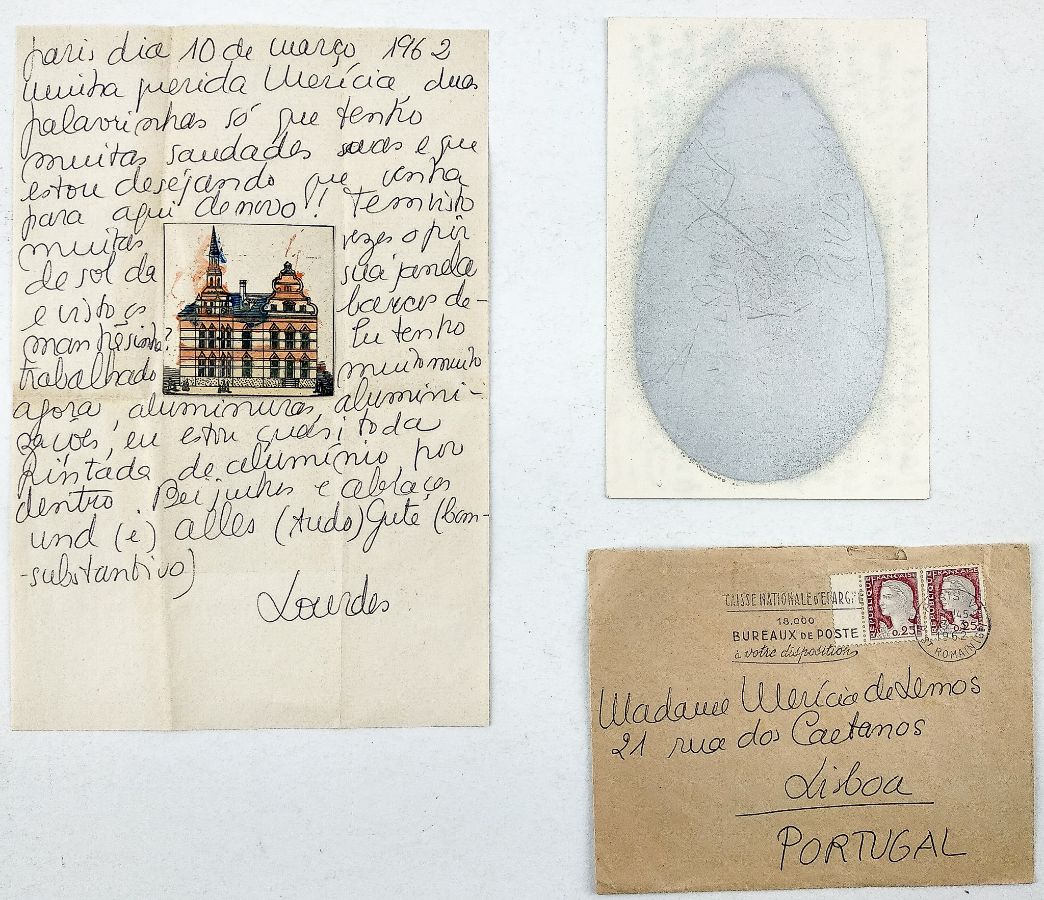 paris dia 10 de março 1962
Minha querida Merícia, duas
palavrinhas só que tenho
muitas saudades suas e que
estou desejando que venha
para aqui de novo! Tem visto
muitas vezes o pôr
de sol da sua janela
e visto os barcos de-
manhãsinha? Eu tenho
trabalhado muito muito
agora, aluminuras, alumini-
zações, eu estou quasi toda
pintada de alumínio por
dentro. Beijinhos e abraços
und (e) alles (tudo) Gute (bom-
-substantivo)
Lourdes
CAISSE NATIONALE D'EPARGNE
18.000
BUREAUX DE POSTE
à votre disposition
REPUBLIQUE FRANCAISE
0,25
REPUBLIQUE FRANCAISE
0,25
1962
ROMAIN
Madame Merícia de Lemos
21 rua dos Caetanos
Lisboa
PORTUGAL